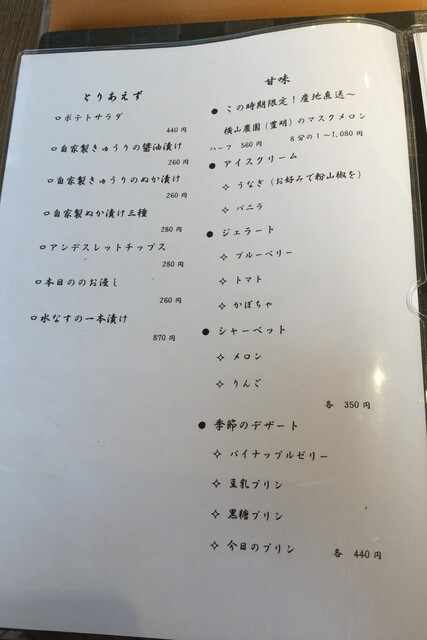 とりあえず
ポテトサラダ
440 円
自家製きゅうりの醤油漬け
260 円
自家製きゅうりのぬか漬け
260 円
自家製ぬか漬け三種
280 円
アンデスレットチップス
280 円
本日ののお浸し
260 円
水なすの一本漬け
870 円
甘味
● この時期限定！産地直送～
横山農園（豊明）のマスクメロン
ハーフ 560 円 8 分の 1～1,080 円
● アイスクリーム
✧ うなぎ（お好みで粉山椒を）
✧ バニラ
● ジェラート
✧ ブルーベリー
✧ トマト
✧ かぼちゃ
● シャーベット
✧ メロン
✧ りんご
各 350 円
● 季節のデザート
✧ パイナップルゼリー
✧ 豆乳プリン
✧ 黒糖プリン
✧ 今日のプリン 各 440 円